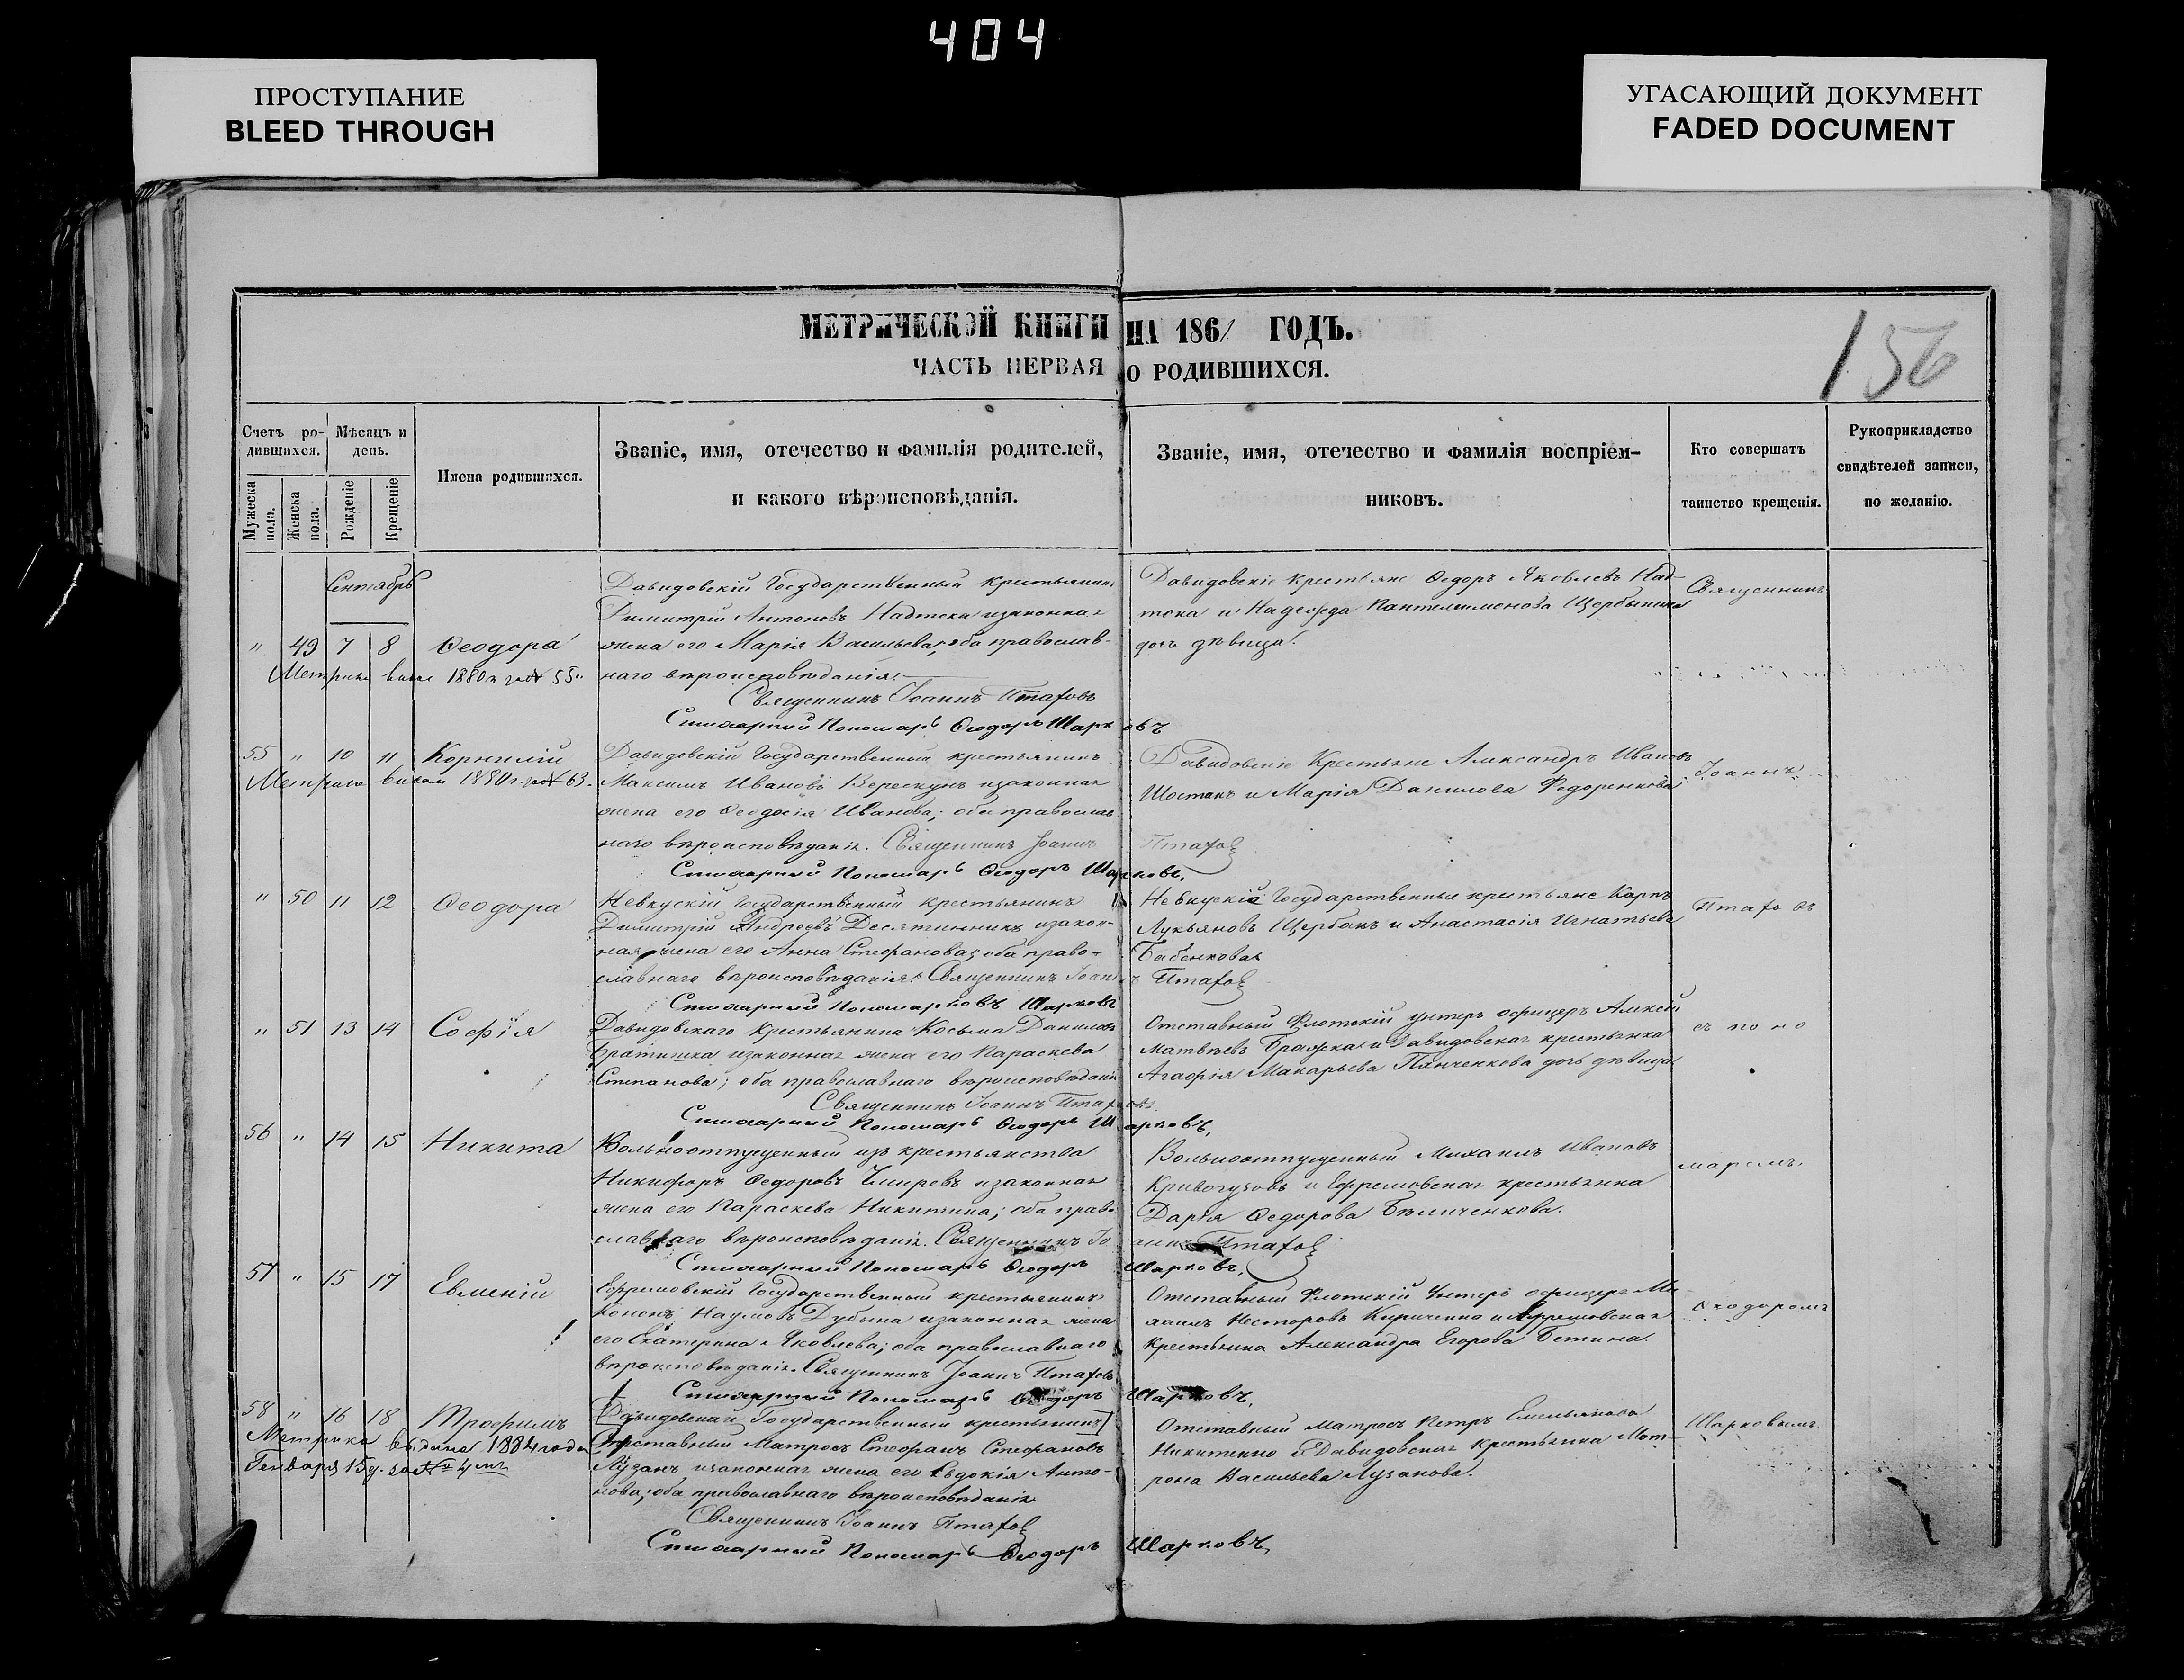 404
ПРОСТУПАНИЕ
BLEED THROUGH
УГАСАЮЩИЙ ДОКУМЕНТ
FADED DOCUMENT
МЕТРИЧЕСКОЙ КНИГИ НА 1861 ГОДЪ.
ЧАСТЬ ПЕРВАЯ О РОДИВШИХСЯ.
156
Счетъ ро-
дившихся.
Мужеска пола.
Женска пола.
Мѣсяцъ и
день.
Рожденіе
Крещеніе
Имена родившихся.
Званіе, имя, отечество и фамилія родителей,
и какого вѣроисповѣданія.
Званіе, имя, отечество и фамилія воспріем-
никовъ.
Кто совершалъ
таинство крещенія.
Рукоприкладство
свидѣтелей записи,
по желанію.
Сентябрь
" 49 7 8 Ѳеодора
Давидовскій Государственный крестьянинъ
Димитрій Антоновъ Надтока изаконная
жена его Марія Васильева; оба православ-
наго вѣроисповѣданія.
Священникъ Іоаннъ
Стихарный Пономарь Ѳеодоръ Шарковъ
Давидовскіе крестьяне Ѳедоръ Яковлевъ Над-
тока и Надежда Пантелимонова
дочь дѣвица.
Священникъ
55 " 10 11 Корнилій
Давидовскій Государственный крестьянинъ
Максимъ Ивановъ Верескунъ изаконная
жена его Ѳеодосія Иванова; оба православ
наго вѣроисповѣданія. Священникъ Іоаннъ
Стихарный Пономарь Ѳеодоръ Шарковъ,
Давидовскіе Крестьяне Александръ Ивановъ
Шостакъ и Марія Данилова Федоренкова
Іоаннъ
" 50 11 12 Ѳеодора
Государственный крестьянинъ
Димитрій Андреевъ Десятинникъ изакон-
ная жена его Анна Стефанова; оба право-
славнаго вѣроисповѣданія. Священникъ Іоаннъ
Стихарный Шарковъ
Государственные крестьяне Карпъ
Лукьяновъ Щербакъ и Анастасія Игнатьева
Бабенкова
" 51 13 14 Софія
Давидовскаго крестьянина Косьма Данилова
Братишка изаконная жена его Параскева
Степанова; оба православнаго вѣроисповѣданія
Священникъ Іоаннъ
Стихарный Пономарь Ѳеодоръ Шарковъ,
Отставный Флотскій унтеръ офицеръ Алексѣй
Матвѣевъ и Давидовская крестьянка
Агафія Макарьева Панченкова дочь дѣвица
съ поно
56 " 14 15 Никита
Вольноотпущенный изъ крестьянства
Никифоръ Ѳедоровъ изаконная
жена его Параскева Никитина; оба право
славнаго вѣроисповѣданія. Священникъ Іоаннъ
Стихарный Пономарь Ѳеодоръ Шарковъ,
Вольноотпущенный Михаилъ Ивановъ
Кривогузовъ и Ефремовская крестьянка
Дарія Ѳедорова Бѣличенкова.
маремъ
57 " 15 17 Евменій
Ефремовскій Государственный крестьянинъ
Кононъ Наумовъ Дубына изаконная жена
его Екатерина Яковлева; оба православнаго
вѣроисповѣданія. Священникъ Іоаннъ
Стихарный Пономарь Ѳеодоръ Шарковъ,
Отставный Флотскій Унтеръ офицеръ Ми
хаилъ Несторовъ Кириченко и Ефремовская
крестьянка Александра Егорова
Ѳеодоромъ
58 " 16 18 Трофимъ
Метрика выдана 1884 года
Генваря 15
Давидовскій Государственный крестьянинъ
Отставный Матросъ Стефанъ Стефановъ
Лузанъ изаконная жена его Евдокія Анто-
нова; оба православнаго вѣроисповѣданія
Священникъ Іоаннъ
Стихарный Пономарь Ѳеодоръ Шарковъ,
Отставный матросъ Петръ Емельяновъ
Никитенко и Давидовская крестьянка Мат-
рона Васильева Лузанова.
Шарковымъ